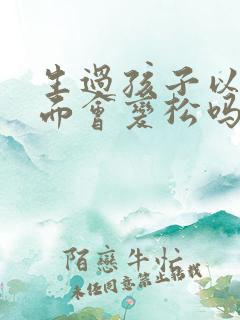 生过孩子以
而会变松吗
陌恋牛忙
未经同意禁止转载